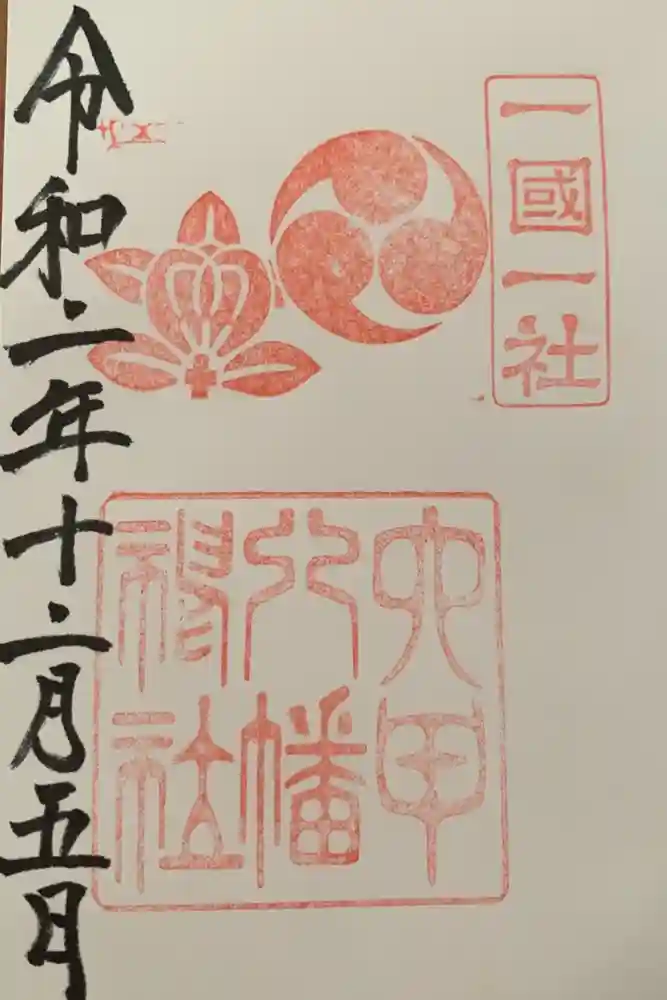 一國一社
大甲
八幡
神社
令和二年十二月五日